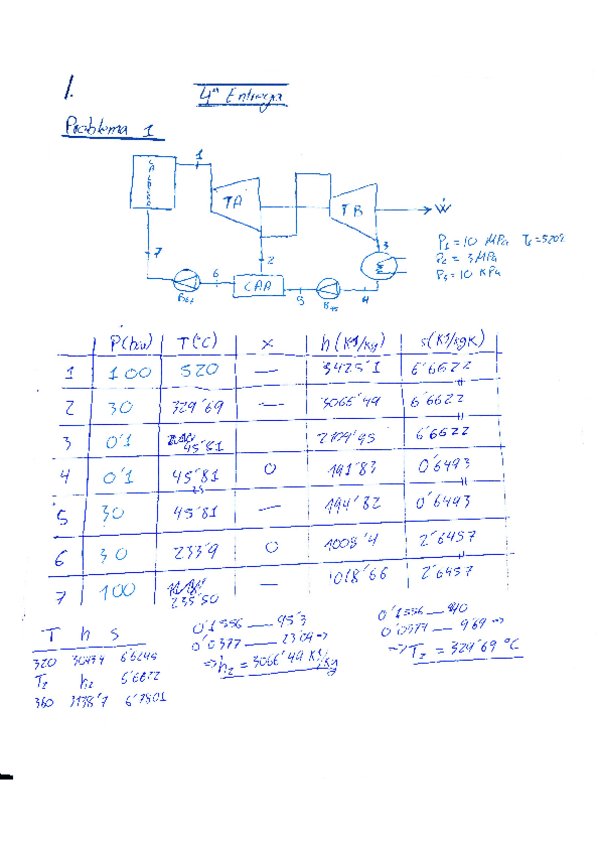 1.
4ª Entrega
Problema 1
1
CALDERA
TA
TB
Ẇ
P₁ = 10 MPa T₁=520º
P₂ = 3 MPa
P₃ = 10 KPa
3
7
2
6
CAA
5
4
P(bar) T(ºC) x h(KJ/kg) s(KJ/kgK)
1 100 520 — 3425'1 6'6622
2 30 329'69 — 3066'49 6'6622
3 0'1 45'81 6'6622
4 0'1 45'81 0 191'83 0'6493
5 30 45'81 — 194'82 0'6493
6 30 233'9 0 1008'4 2'6457
7 100 235'50 — 1018'66 2'6457
T h s
320 6'6245
T₂ h₂
360 3138'7 6'7801
0'1556 — 95'3
0'0377 — 23'09 =>
=> h₂ = 3066'49 KJ/kg
0'1556 — 40
0'0377 — 9'69 =>
=> T₂ = 329'69 ºC